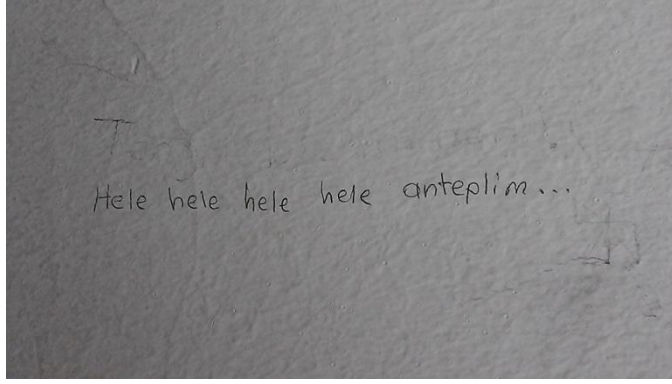 Hele hele hele hele anteplim...